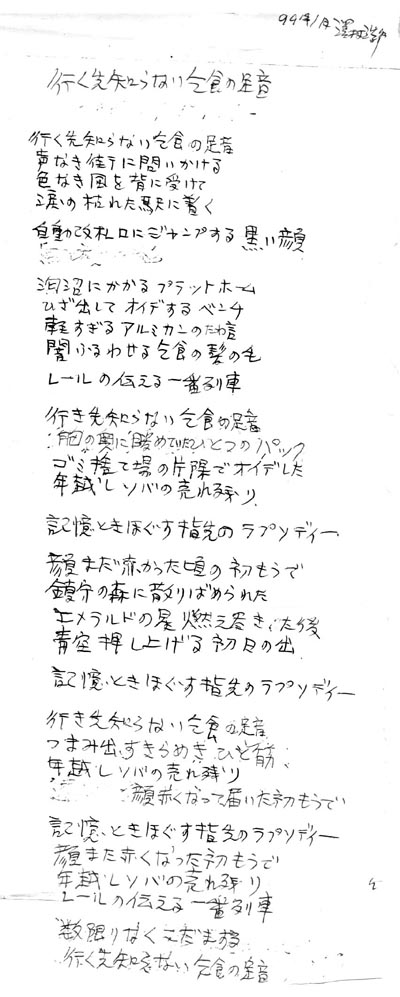 94年1月
行く先知らない乞食の足音
行く先知らない乞食の足音
声なき徒手に問いかける
色なき風を背に受けて
涙の枯れた駅に着く
自動改札口にジャンプする黒い顔
泪沼にかかるプラットホーム
ひざ出してオイデするベンチ
軽すぎるアルミカンのたわ言
闇ふるわせる乞食の髪の毛
レールの伝える一番列車
行き先知らない乞食の足音
胸の奥に暖めていたひとつのパック
ゴミ捨て場の片隅でオイデした
年越しソバの売れ残り
記憶ときほぐす指先のラプソディー
顔まだ赤かった頃の初もうで
鎮守の森に散りばめられた
エメラルドの星燃え尽きた後
青空押し上げる初日の出
記憶ときほぐす指先のラプソディー
行き先知らない乞食の足音
つまみ出すきらめきひと筋
年越しソバの売れ残り
顔赤くなって届いた初もうで
記憶ときほぐす指先のラプソディー
顔また赤くなった初もうで
年越しソバの売れ残り
レールの伝える一番列車
数限りなくこだまする
行く先知らない乞食の足音